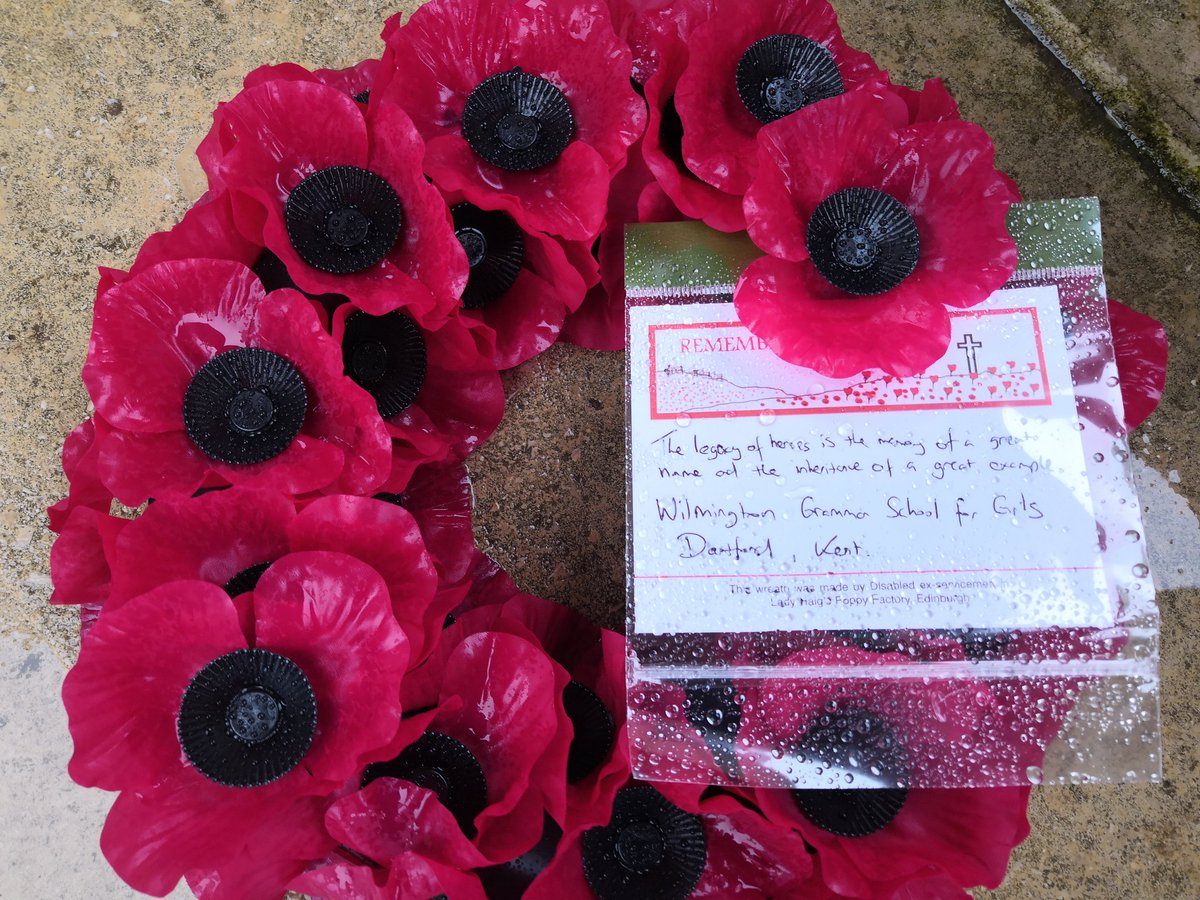 REMEMB
The legacy of heroes is the memory of a great
name and the inheritance of a great example
Wilmington Grammar School for Girls
Dartford, Kent.
This wreath was made by Disabled ex-servicemen
Lady Haig's Poppy Factory, Edinburgh